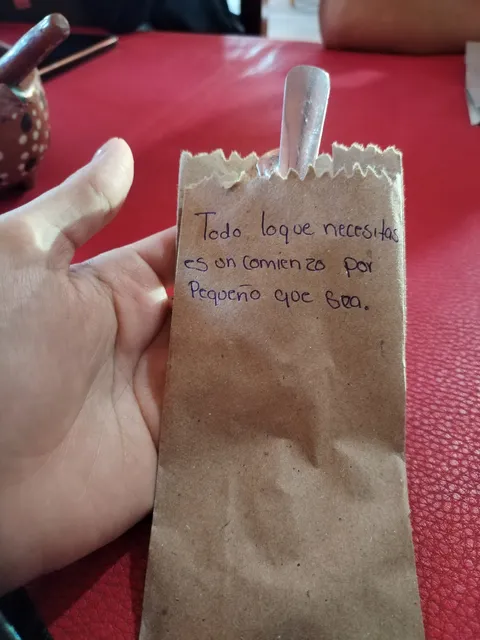 Todo loque necesitas
es un comienzo por
Pequeño que sea.